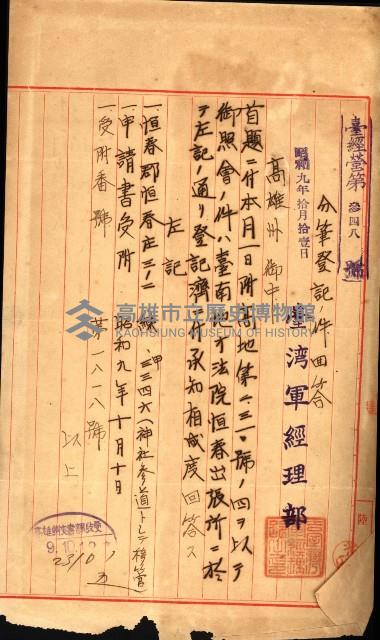 臺經營第参四八號
分筆登記ノ件回答
昭和九年拾月拾壹日
臺湾軍經理部
高雄州御中
首題ニ付本月一日附高地第二三一〇號ノ四ヲ以テ
御照會ノ件ハ臺南地方法院恒春出張所ニ於
テ左記ノ通リ登記濟ニ付承知相成度回答ス
左記
一、恒春郡恒春庄
一、申請書受附 昭和九年十月十日
一、受附番號 第一八一八號
以上
陸
高雄市立歷史博物館
KAOHSIUNG MUSEUM OF HISTORY